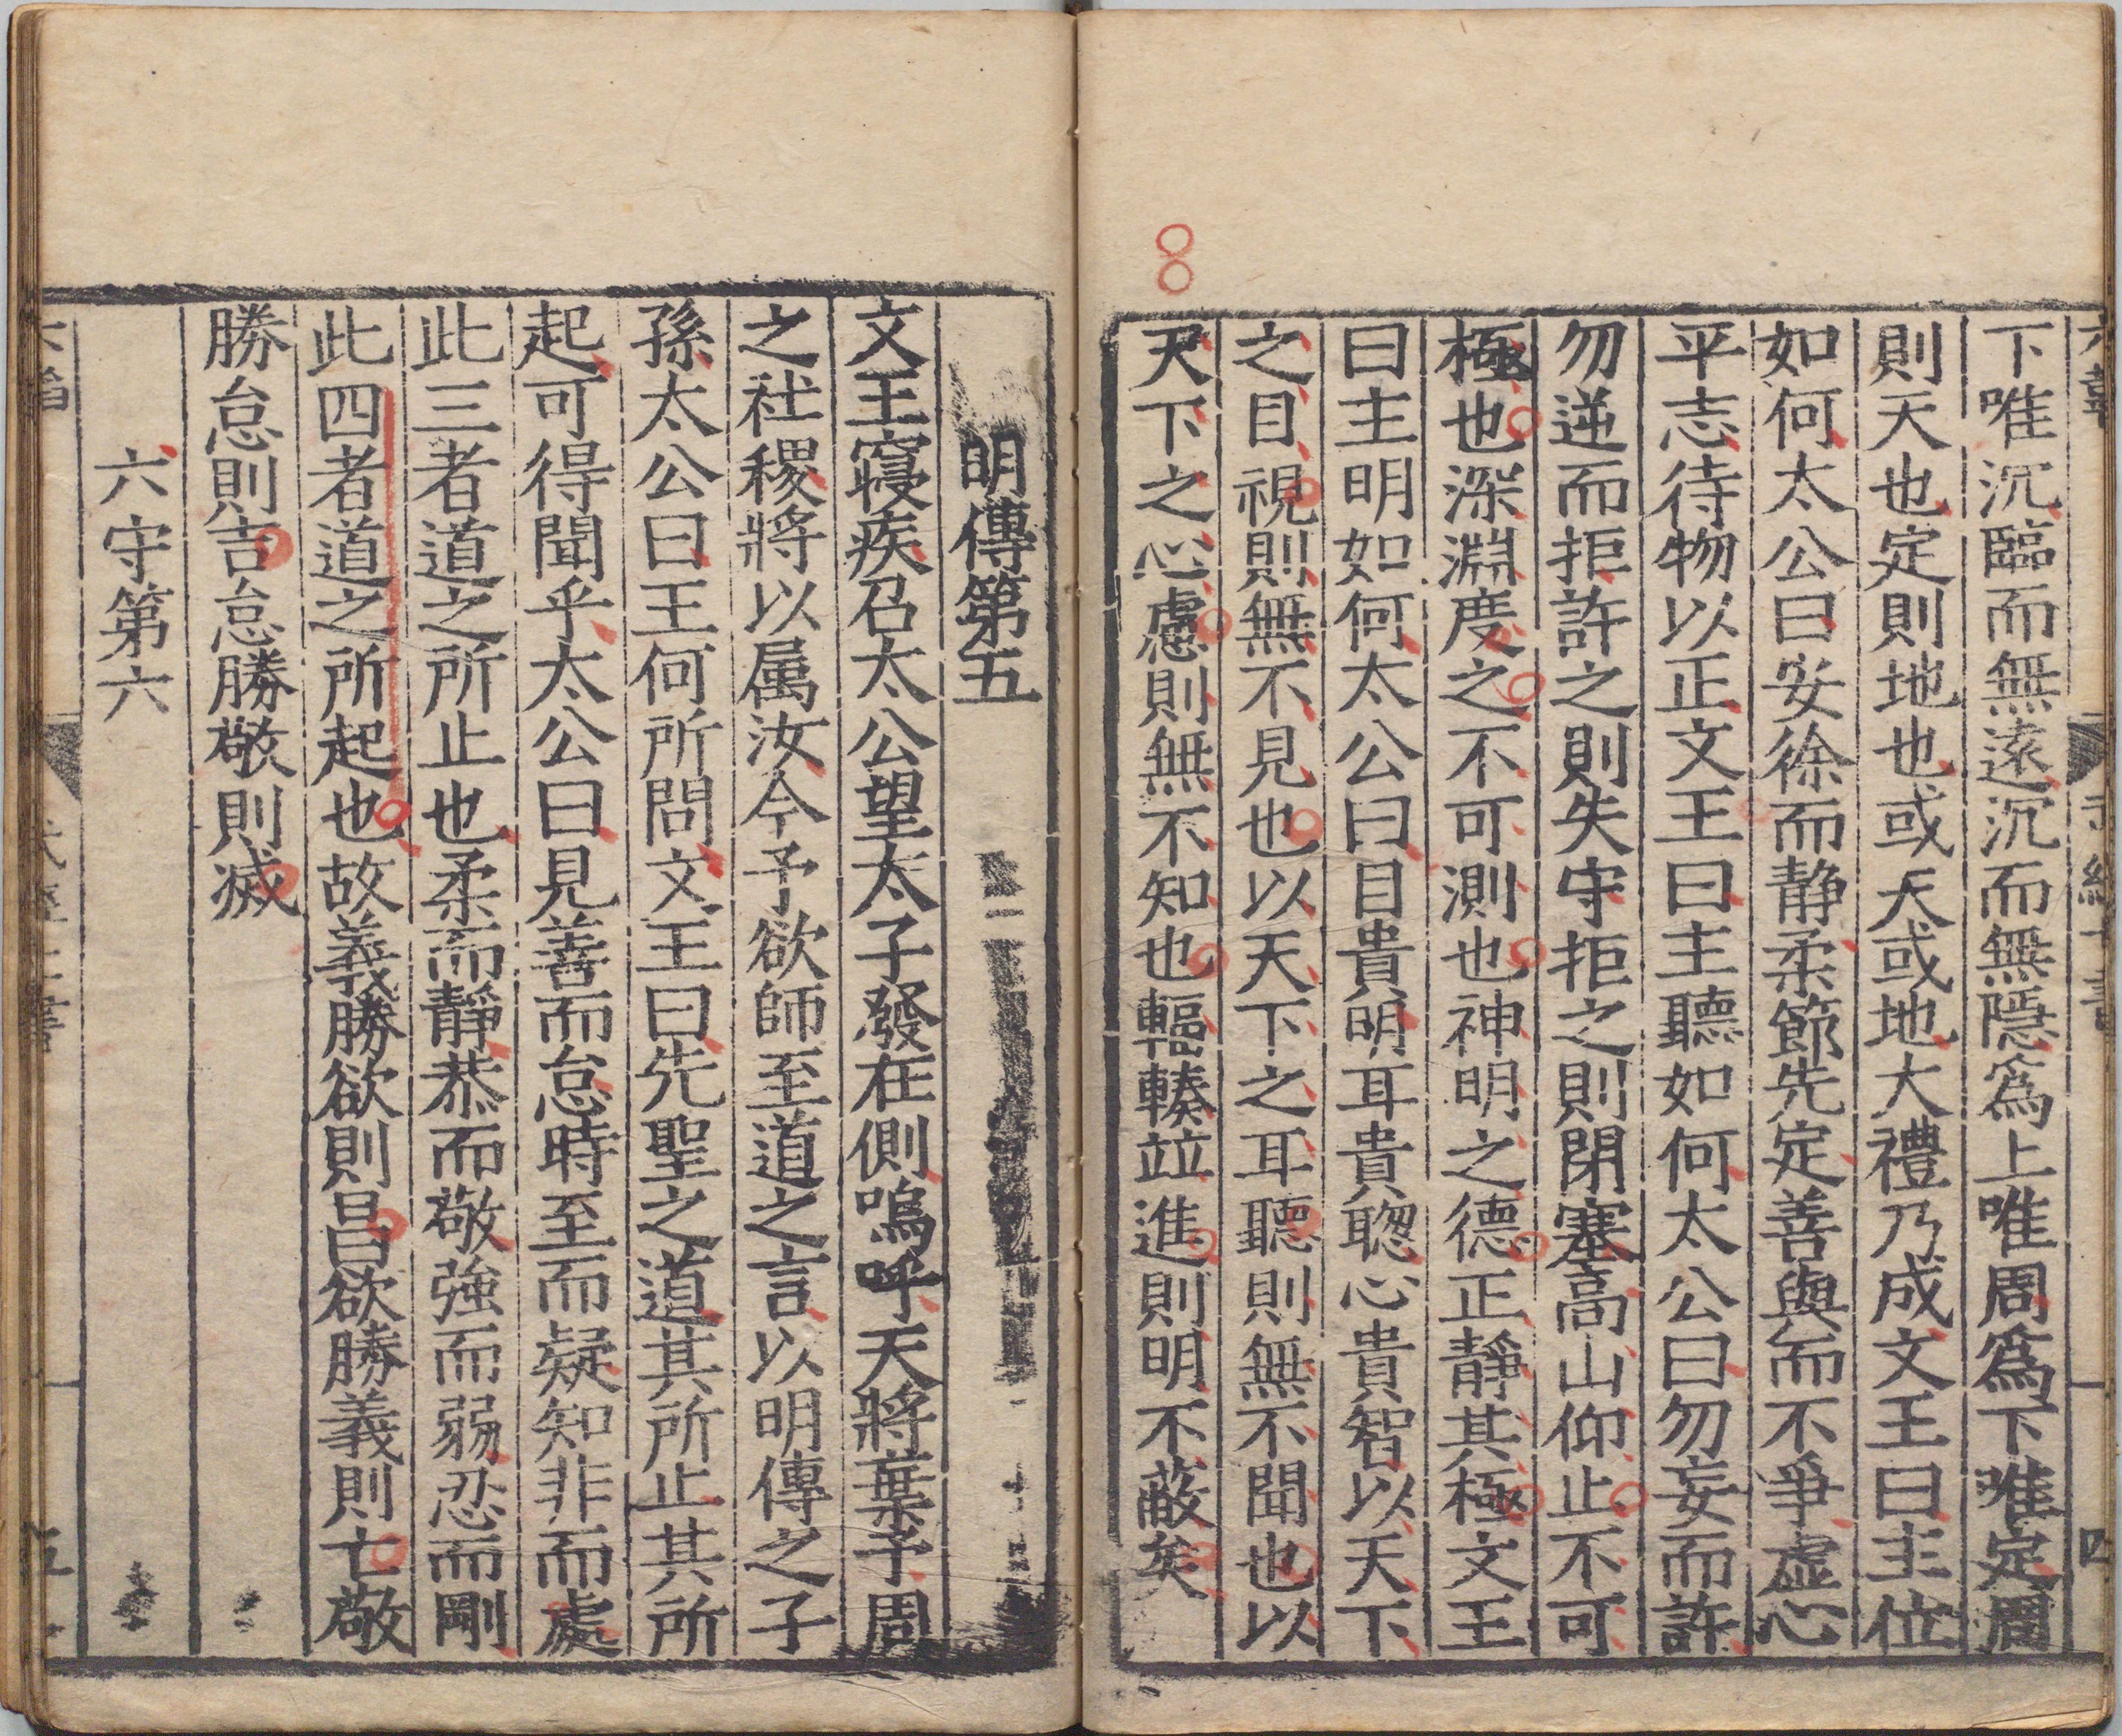 下唯沉臨而無遠沉而無隱爲上唯周爲下唯定周
則天也定則地也或天或地大禮乃成文王曰主位
如何太公曰安徐而静柔節先定善與而不爭虛心
平志待物以正文王曰主聽如何太公曰勿妄而許
勿逆而拒許之則失守拒之則閉塞高山仰止不可
極也深淵度之不可測也神明之德正靜其極文王
曰主明如何太公曰目貴明耳貴聦心貴智以天下
之目視則無不見也以天下之耳聽則無不聞也以
天下之心慮則無不知也輻輳竝進則明不蔽矣
明傳第五
文王寢疾召太公望太子發在側嗚呼天將棄予周
之社稷將以属汝今予欲師至道之言以明傳之子
孫太公曰王何所問文王曰先聖之道其所止其所
起可得聞乎太公曰見善而怠時至而疑知非而處
此三者道之所止也柔而靜恭而敬強而弱忍而剛
此四者道之所起也故義勝欲則昌欲勝義則亡敬
勝怠則吉怠勝敬則滅
六守第六